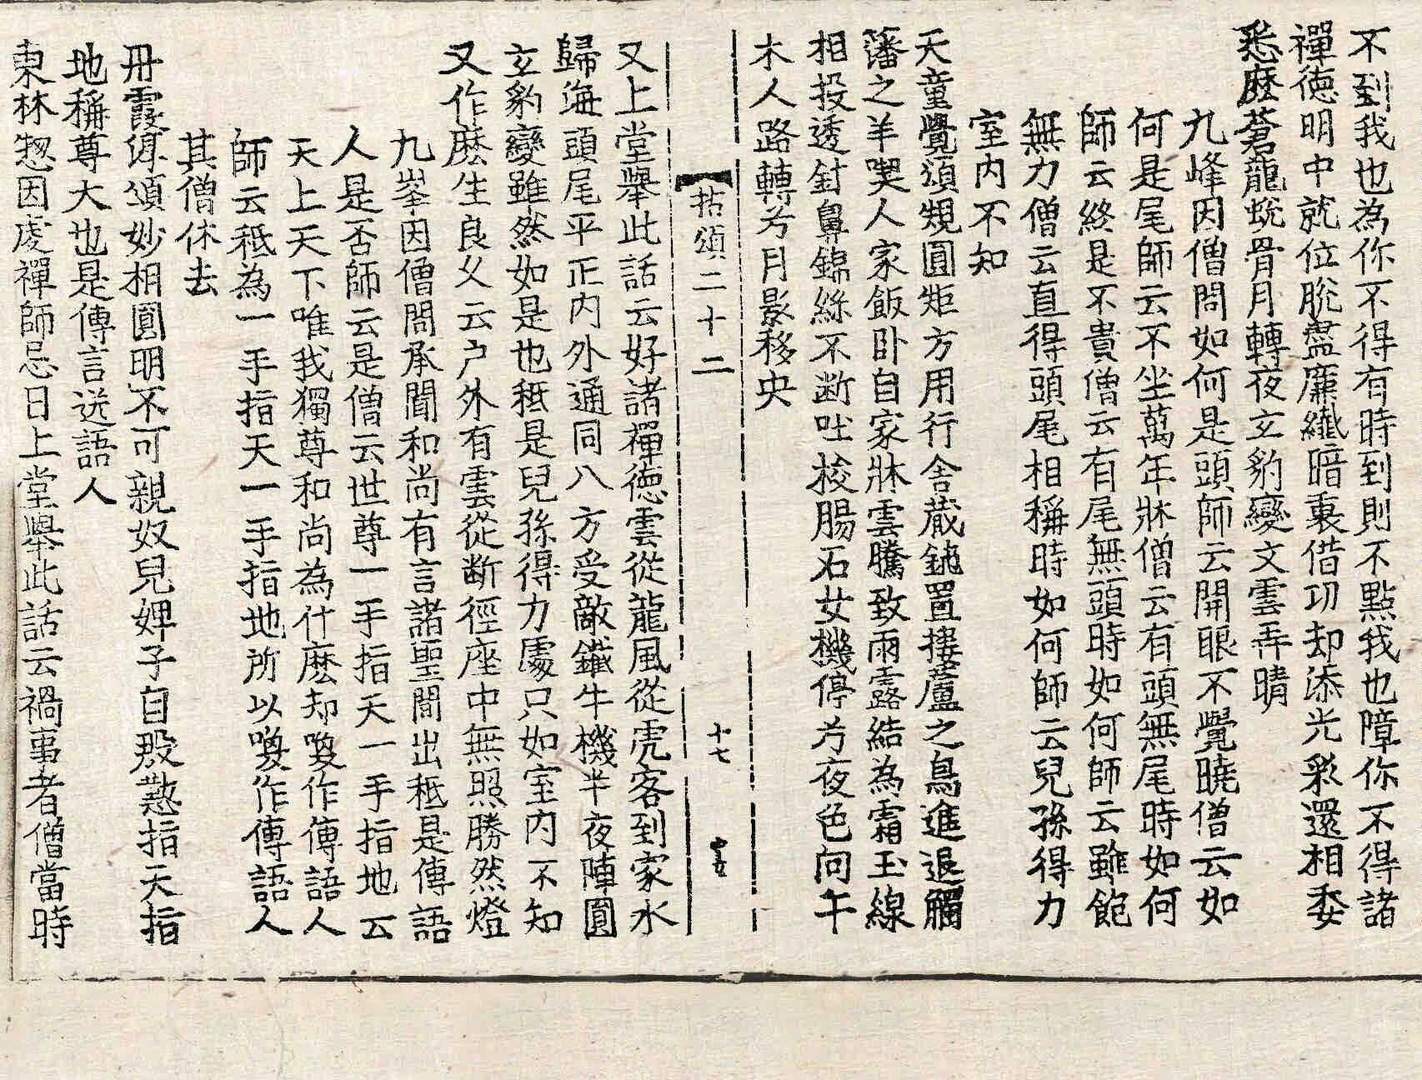 不到我也為你不得有時到則不點我也障你不得諸
禪德明中就位脫盡廉纖暗裏借功却添光彩還相委
悉麽蒼龍蛻骨月轉夜玄豹變文雲弄晴
九峰因僧問如何是頭師云開眼不覺曉僧云如
何是尾師云不坐萬年牀僧云有頭無尾時如何
師云終是不貴僧云有尾無頭時如何師云雖飽
無力僧云直得頭尾相稱時如何師云兒孫得力
室內不知
天童覺頌規圓矩方用行舍藏鈍置捿蘆之鳥進退觸
藩之羊喫人家飯臥自家牀雲騰致雨露結為霜玉線
相投透針鼻錦絲不斷吐梭腸石女機停兮夜色向午
木人路轉兮月影移央
拈頌二十二 十七
又上堂舉此話云好諸禪德雲從龍風從虎客到家水
歸海頭尾平正內外通同八方受敵鐵牛機半夜陣圓
玄豹變雖然如是也秪是兒孫得力處只如室內不知
又作麽生良久云戶外有雲從斷徑座中無照勝然燈
九峯因僧問承聞和尚有言諸聖間出秪是傳語
人是否師云是僧云世尊一手指天一手指地云
天上天下唯我獨尊和尚為什麽却喚作傳語人
師云秪為一手指天一手指地所以喚作傳語人
其僧休去
丹霞淳頌妙相圓明不可親奴兒婢子自殷懃指天指
地稱尊大也是傳言送語人
東林惣因虔禪師忌日上堂舉此話云禍事者僧當時